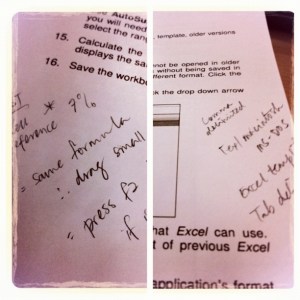 AutoSu
you will need
select the ran
15. Calculate the
displays the sa
16. Save the workb
* 7%
same formula
drag small
press f2
if
template, older versions
not be opened in older
without being saved in
fferent format. Click the
k the drop down arrow
comma
delimited
Text macintosh
MS-DOS
Excel temp
Tab del
hat Excel can use.
t of previous Excel
application's format